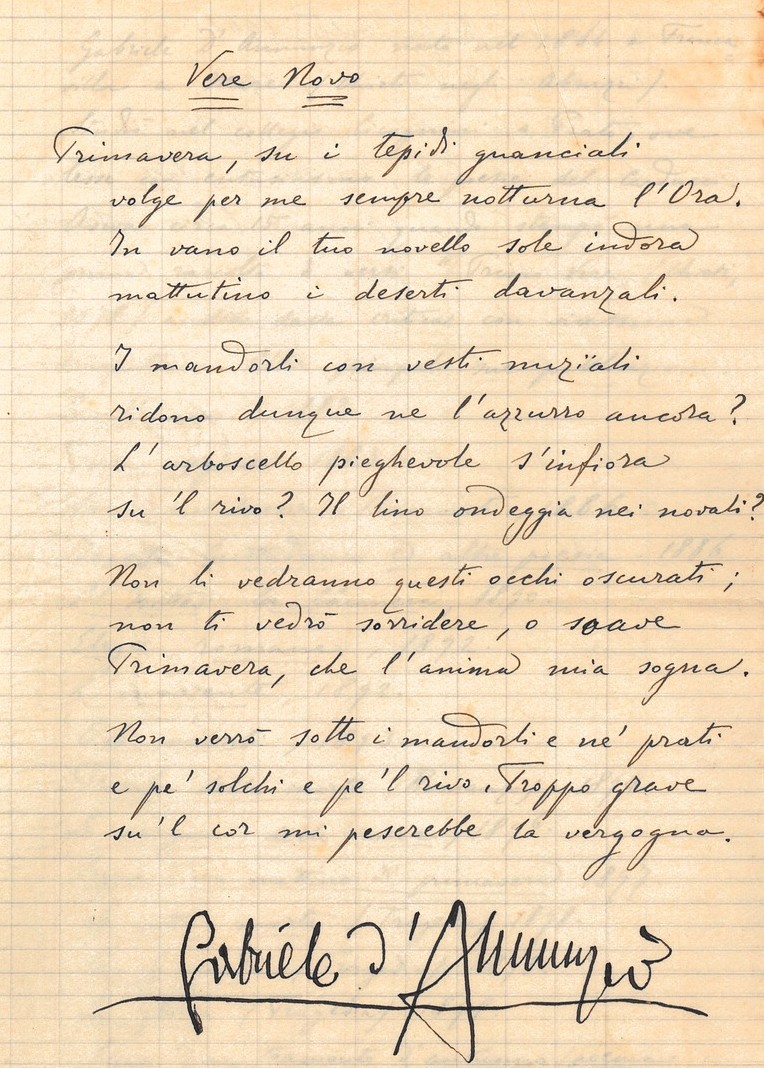 Vere Novo
Primavera, su i tepidi guanciali
volge per me sempre notturna l'Ora.
In vano il tuo novello sole indora
mattutino i deserti davanzali.
I mandorli con vesti nuzïali
ridono dunque ne l'azzurro ancora?
L'arboscello pieghevole s'infiora
su 'l rivo? Il lino ondeggia nei novali?
Non li vedranno questi occhi oscurati;
non ti vedrò sorridere, o soave
Primavera, che l'anima mia sogna.
Non verrò sotto i mandorli e ne' prati
e pe' solchi e pe'l rivo. Troppo grave
su'l cor mi peserebbe la vergogna.
Gabriele d'Annunzio